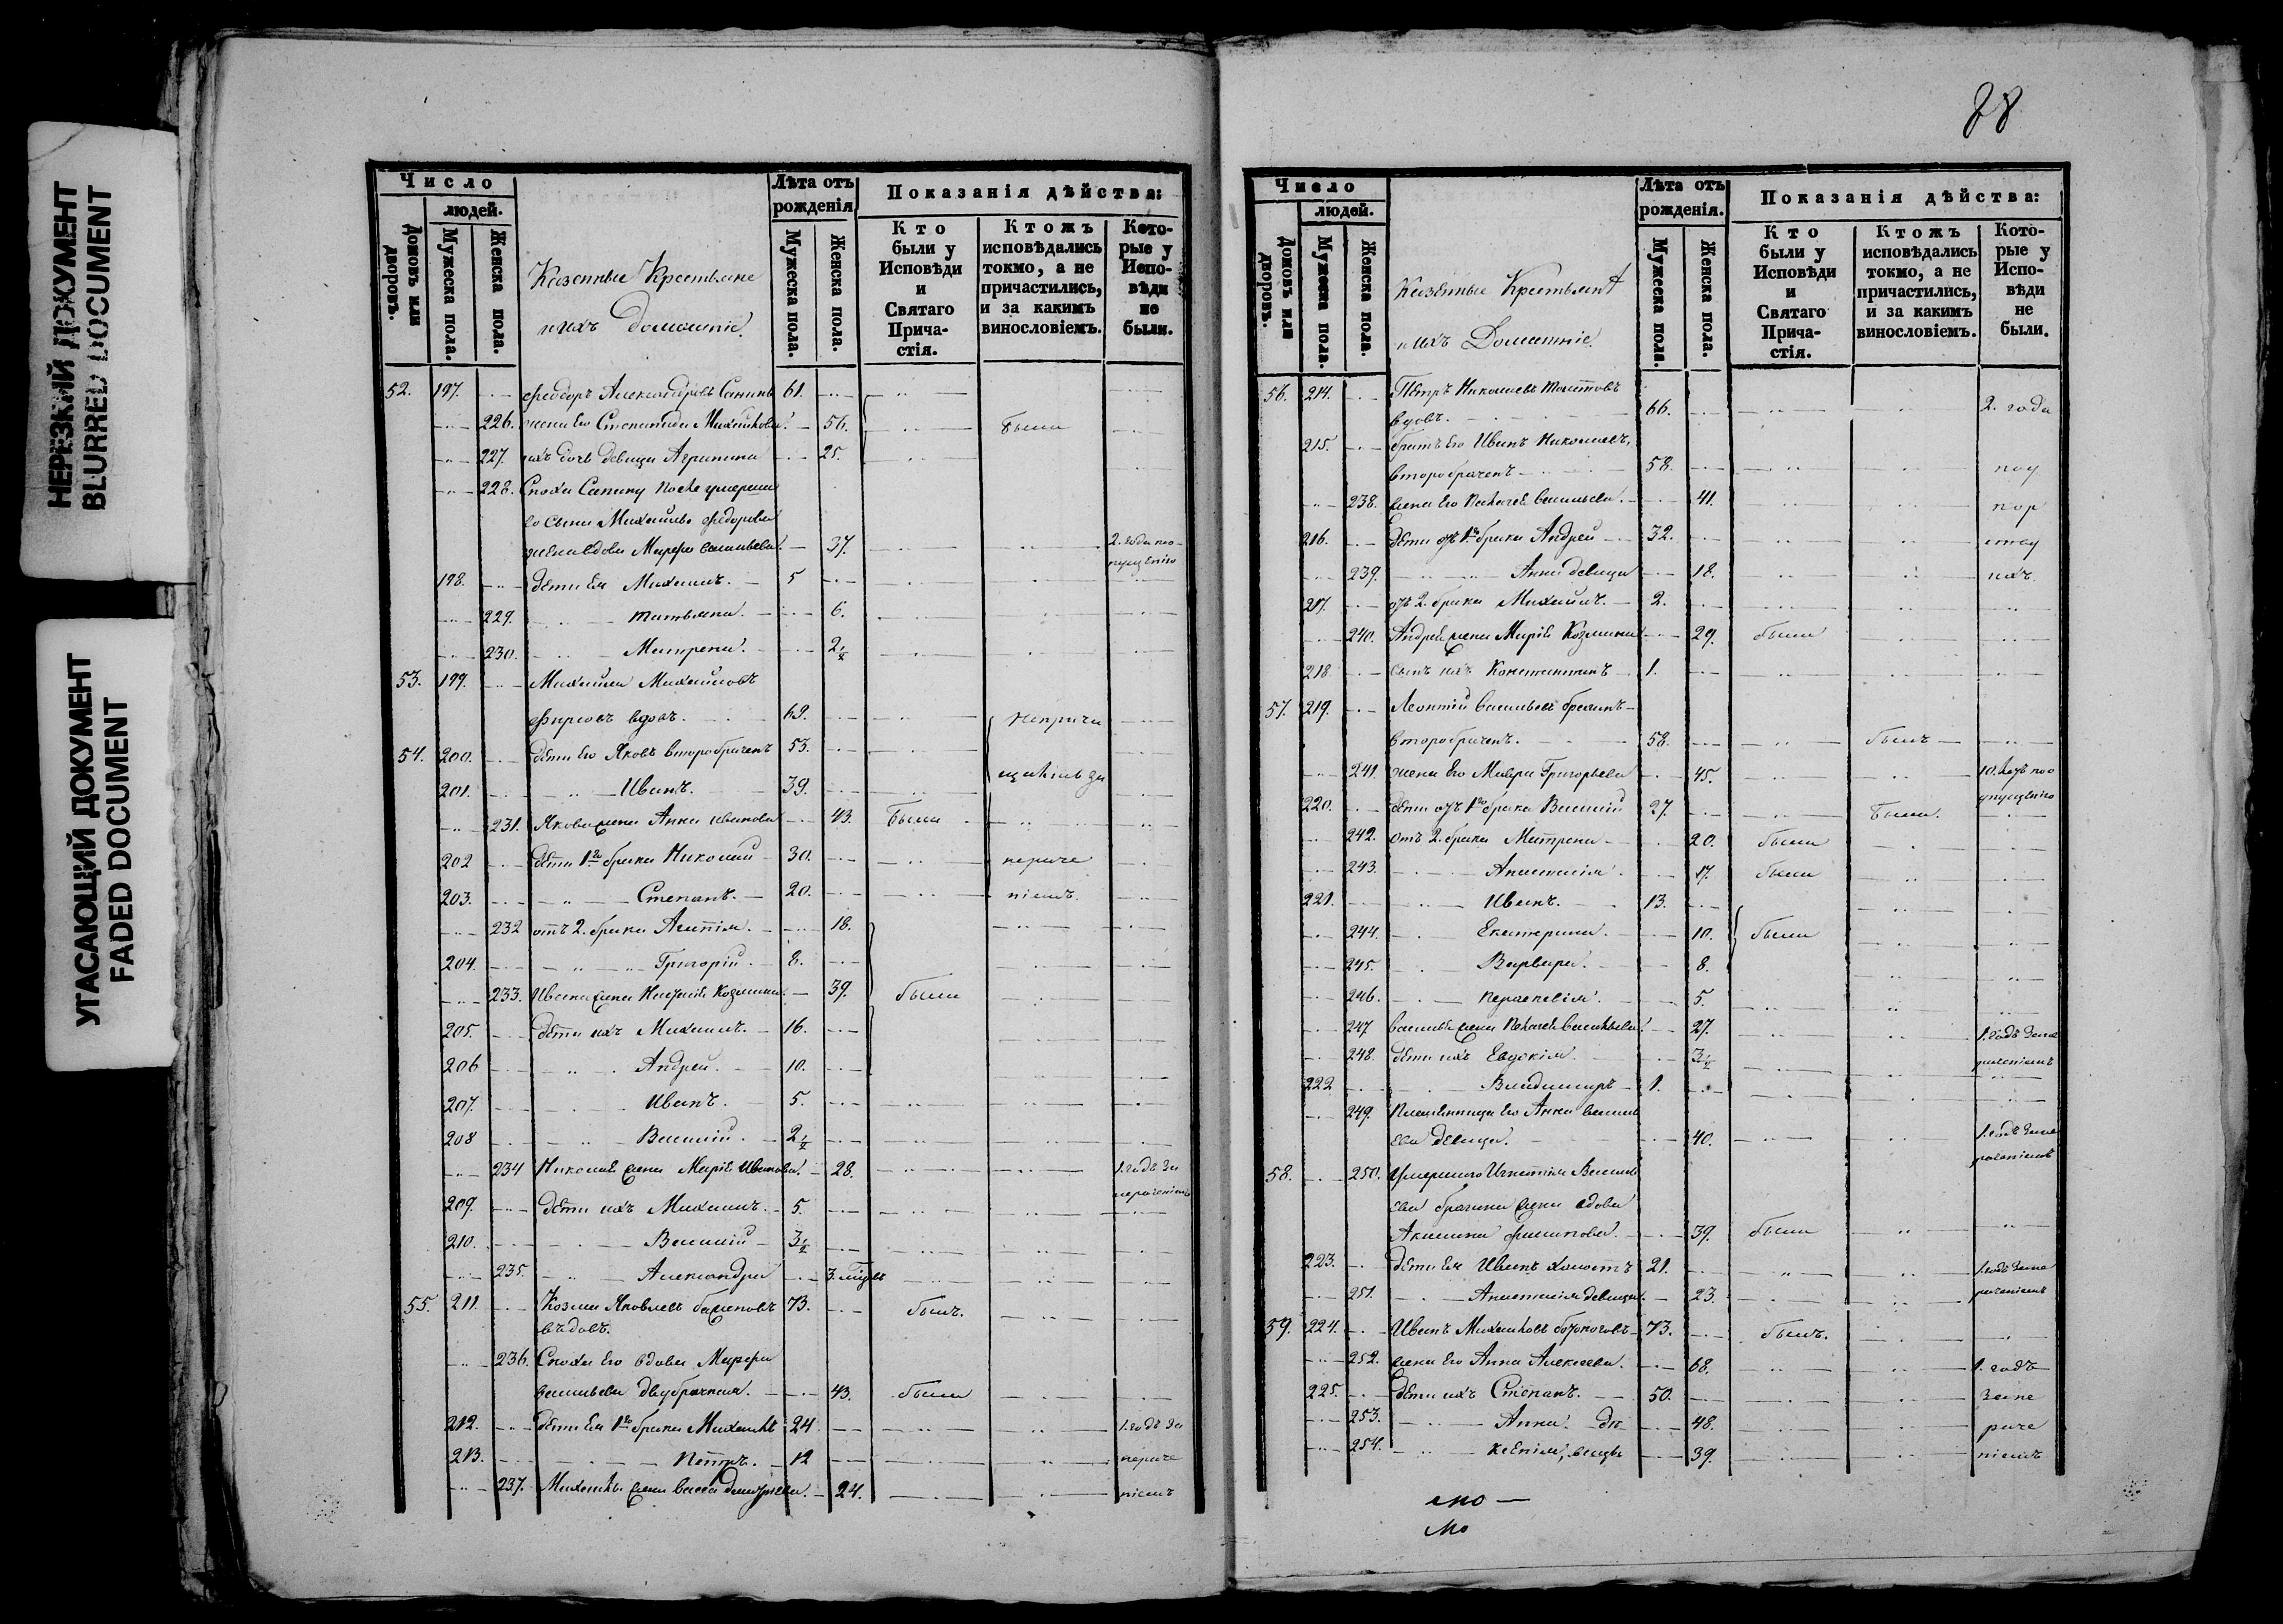 НЕРЕЗКИЙ ДОКУМЕНТ
BLURRED DOCUMENT
УГАСАЮЩИЙ ДОКУМЕНТ
FADED DOCUMENT
Число
людей.
Домовъ или дворовъ.
Мужеска пола.
Женска пола.
Казенные Крестьяне
и ихъ домашніе.
Лѣта отъ рожденія
Мужеска пола.
Женска пола.
Показанія дѣйства:
Кто были у Исповѣди и Святаго Причастія.
Ктожъ исповѣдались токмо, а не причастились, и за какимъ винословіемъ.
Которые у Исповѣди не были.
52. 197. Федоръ Александровъ 61.
226. жена Его Степанида Михайлова 56. были
227. ихъ дочь девица Агрипина 25.
228. Сноха после умерша
го сына Михаила Федорова
жена вдова Марфа Васильева 37. 2. года по опущенію
198. дети Ея Михаилъ. 5
229. Татьяна. 6.
230. Матрена. 2½
53. 199. Михайла Михайловъ
Фирсовъ вдовъ. 69. неприча
54. 200. дети Его Яковъ второбраченъ 53.
201. Иванъ. 39. щались за
231. Якова жена Анна Иванова 43. Была
202 дети 1го брака Николай 30. нераче
203. Степанъ. 20. ніемъ.
232 отъ 2. брака 18.
204. Григорій. 8.
233. Ивана жена Козмина 39. были
205. дети ихъ Михаилъ. 16.
206 Андрей. 10.
207. Иванъ. 5.
208 Василій. 2½
234 Николая жена Марія Иванова. 28. 1. годъ за нераченіемъ
209. дети ихъ Михаилъ. 5.
210. Василій 3½
235. Александра 3.
55. 211. Козма Яковлевъ 73. былъ.
вдовъ.
236. Сноха Его вдова Марфа
Васильева двубрачная. 43. была
212. дети Ея 1го брака Михаилъ 24 1. годъ за
213. Петръ. 12 нераче
237. Михаила жена Васса 24. ніемъ
28
Число
людей.
Домовъ или дворовъ.
Мужеска пола.
Женска пола.
Казенные Крестьяне
и ихъ Домашніе.
Лѣта отъ рожденія.
Мужеска пола.
Женска пола.
Показанія дѣйства:
Кто были у Исповѣди и Святаго Причастія.
Ктожъ исповѣдались токмо, а не причастились, и за какимъ винословіемъ.
Которые у Исповѣди не были.
56. 214. Петръ Николаевъ
вдовъ. 66. 2. года
215. братъ Его Иванъ Николаевъ,
второбраченъ 58.
238. жена Его Пелагея Васильева. 41.
216. дети отъ 1го брака Андрей 32.
239. Анна девица 18.
217. отъ 2. брака Михаилъ. 2.
240. Андрея жена Марія Козмина 29. была
218 сынъ ихъ Константинъ 1.
57. 219. Леонтій Васильевъ Брагинъ
второбраченъ. 58. былъ
241. жена Его Мавра Григорьева 45. 10. летъ по опущенію
220. дети отъ 1го брака Василій 27. были.
242. отъ 2. брака Матрена 20. была
243. Анастасія. 17. была
221. Иванъ. 13.
244. Екатерина. 10. были
245. Варвара. 8.
246. Парасковія. 5.
247 Василья жена Пелагея Васильева. 27. 1. годъ за не
248. дети ихъ Евдокія. 3½ раченіемъ
222 Владимиръ 1.
249. Племянница Его Анна Василь
ева девица. 40. 1. годъ за не раченіемъ
58. 250. Умершаго Игнатія Василь
ева Брагина жена вдова
Акилина Филипова. 39. была
223. дети Ея Иванъ холостъ 21. 1. годъ за не
251. Анастасія девица. 23. раченіемъ
59. 224. Иванъ Михайловъ 73. былъ.
252. жена Его Анна Алексеева. 68. 1. годъ
225. дети ихъ Степанъ. 50. за не
253. Анна. де 48. раче
254. Ксенія, вицы 39. ніемъ